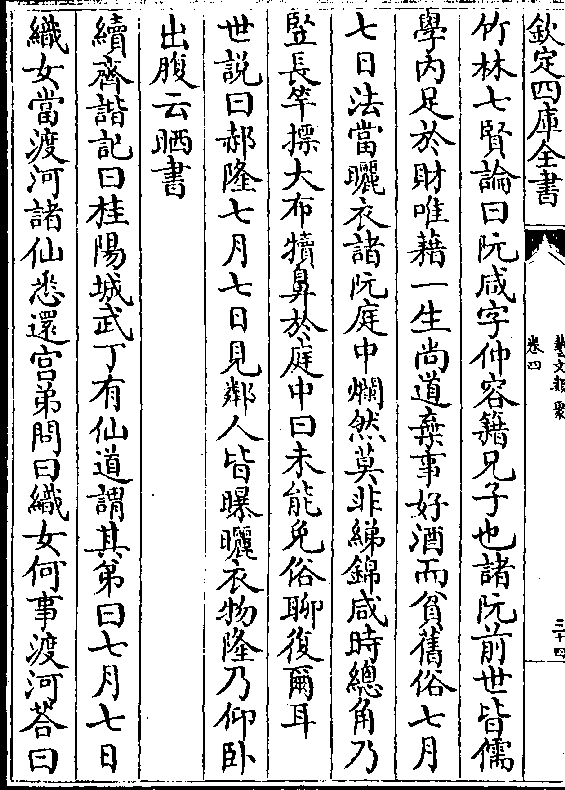 欽定四庫全書
藝文類聚
卷四
三十四
竹林七賢論曰阮咸字仲容籍兄子也諸阮前世皆儒
學内足於財唯藉一生尚道棄事好酒而貧舊俗七月
七日法當曬衣諸阮庭中爛然莫非綈錦咸時總角乃
竪長竿摽大布犢鼻於庭中曰未能免俗聊復爾耳
世説曰郝隆七月七日見鄰人皆曝曬衣物隆乃仰卧
出腹云晒書
續齊諧記曰桂陽城武丁有仙道謂其弟曰七月七日
織女當渡河諸仙悉還宫弟問曰織女何事渡河荅曰